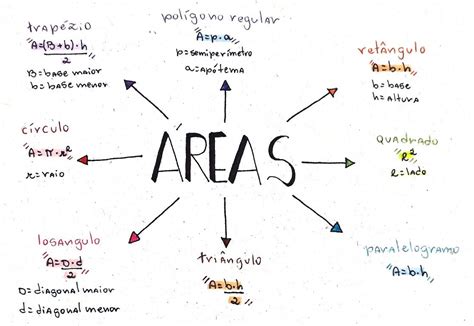 trapézio
"A=(B+b)·h"
2
B=base maior
b=base menor
polígono regular
"A=p·a"
p=semiperímetro
a=apótema
retângulo
"A=b·h"
b=base
h=altura
círculo
"A=π·r²"
r=raio
ÁREAS
quadrado
"l²"
l=lado
losangulo
"A=D·d"
2
D=diagonal maior
d=diagonal menor
triângulo
"A=b·h"
2
paralelogramo
"A=b.h"